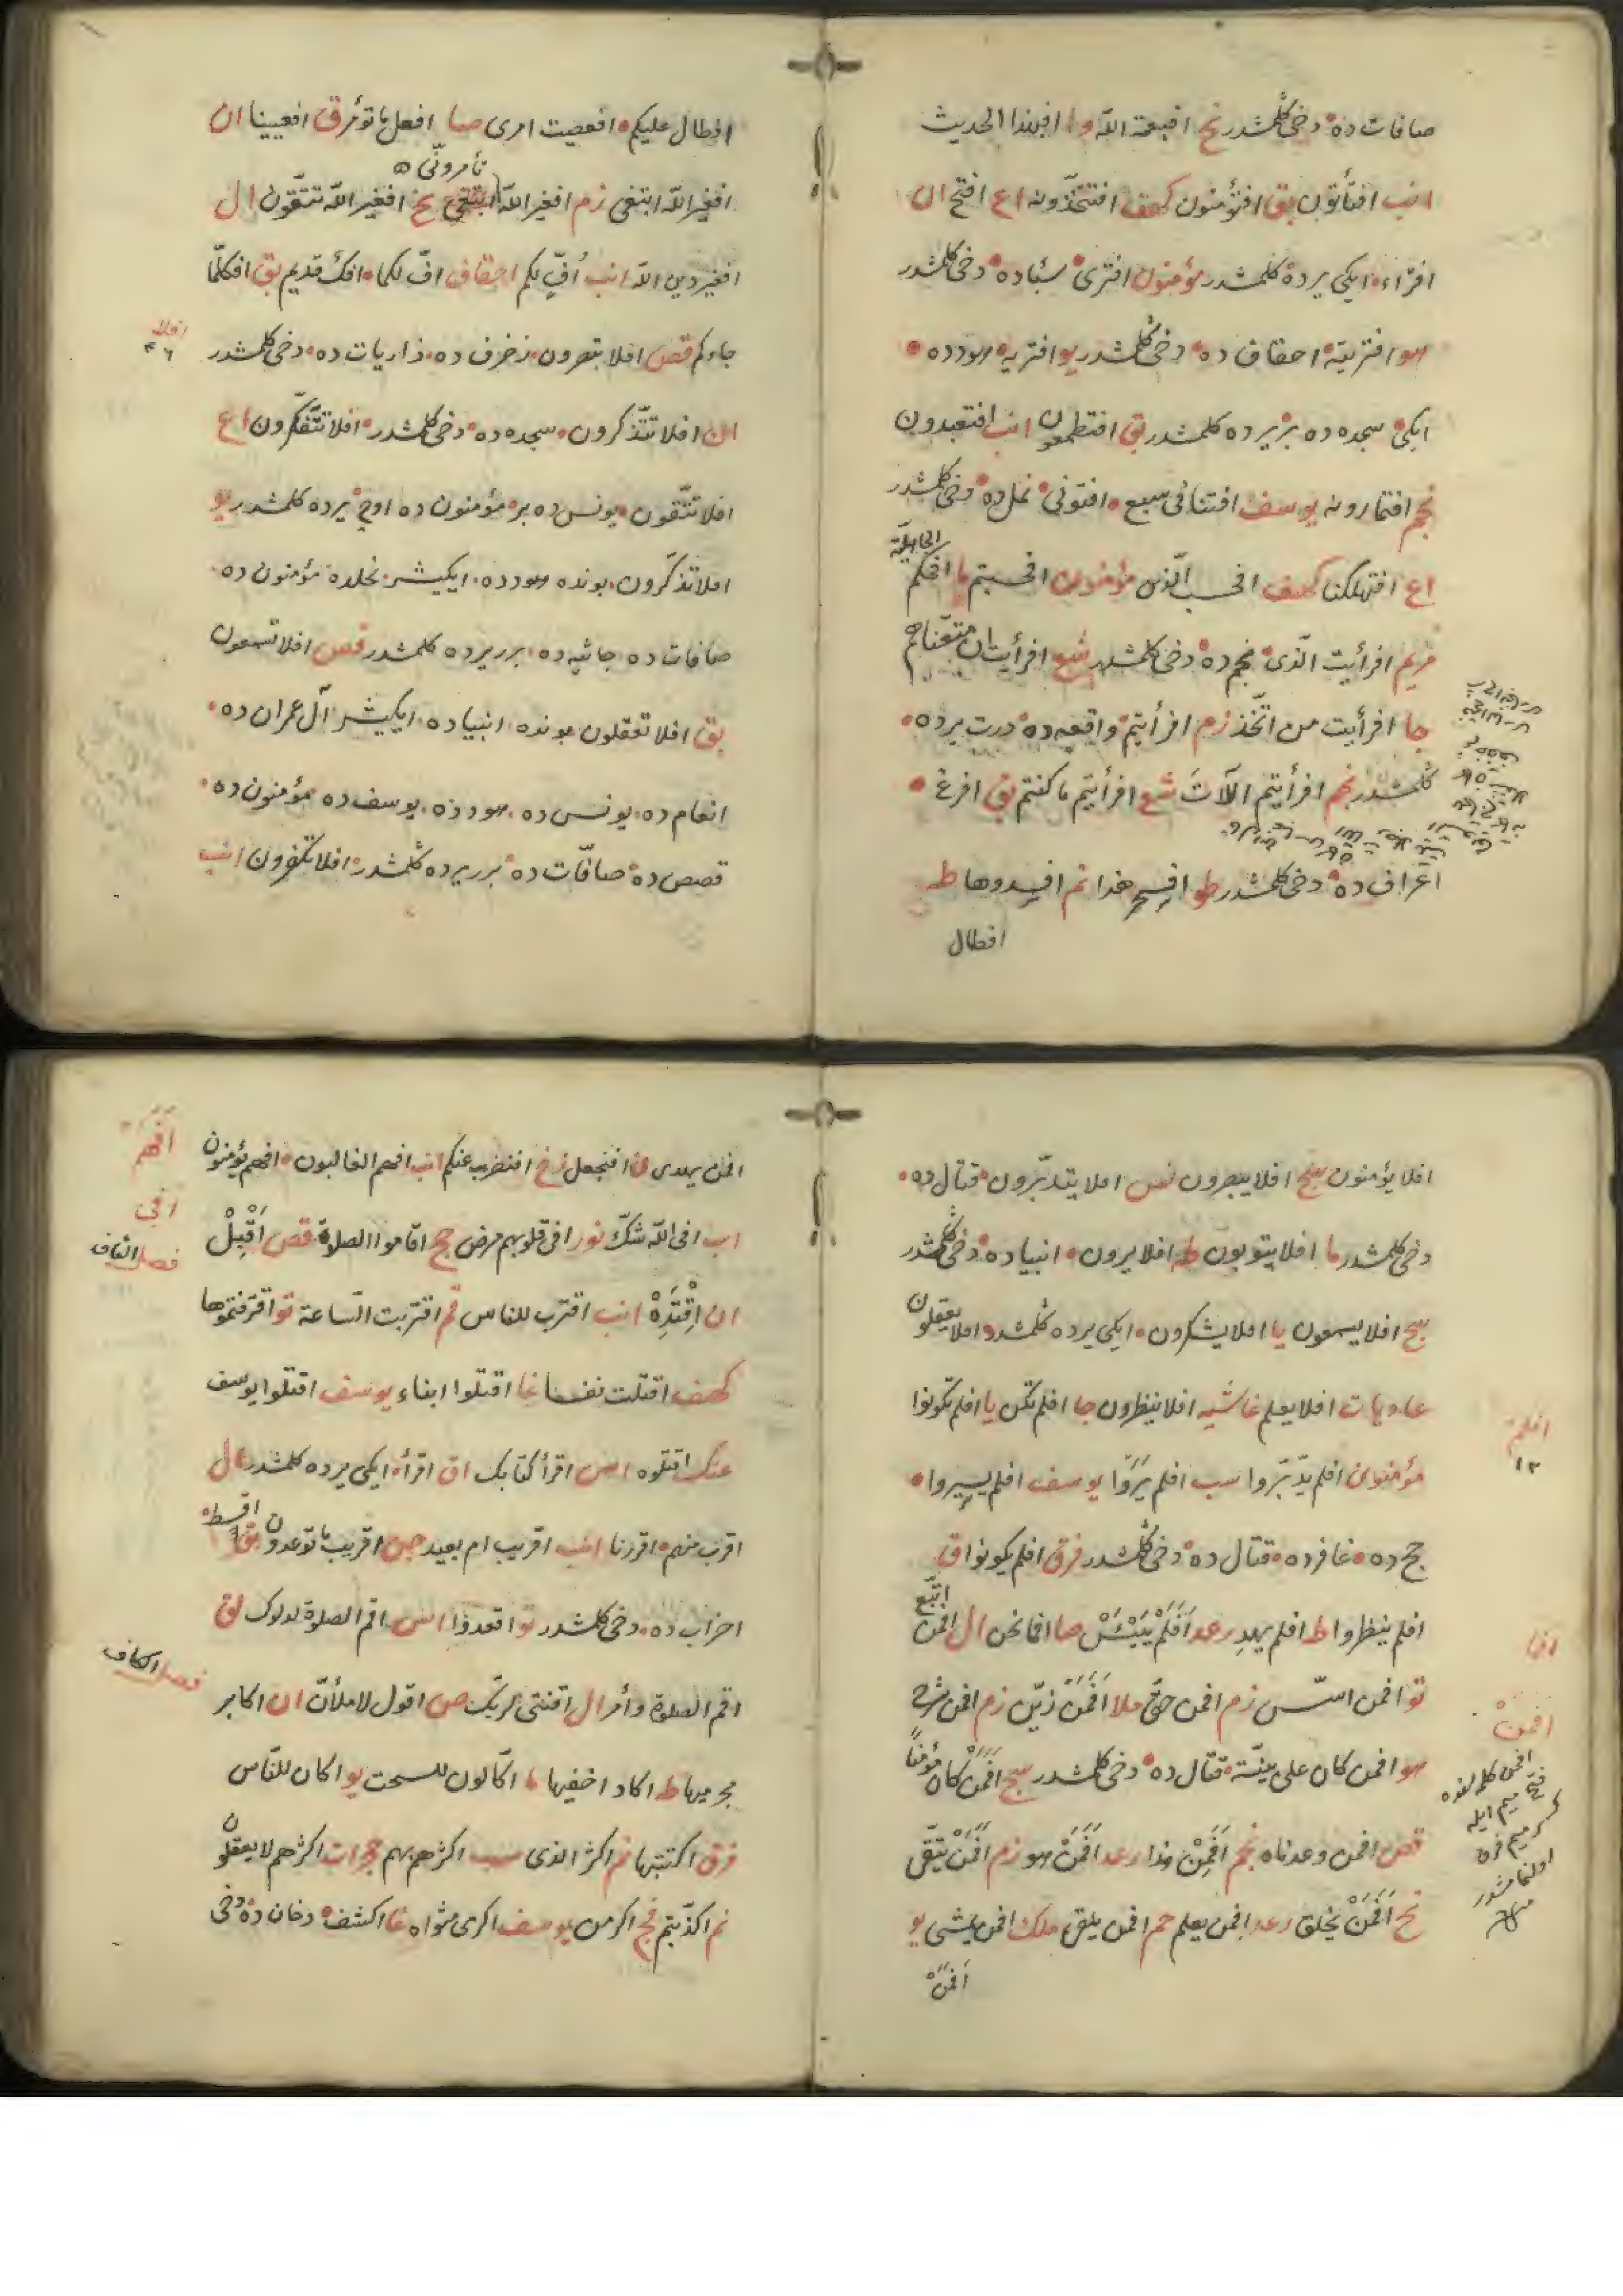 صافات ده دخی كلمشدر نح افبنعمة الله وا افبهذا الحدیث
انب افتأتون بق افتؤمنون كهف افتتخذونه اع افتح ال
افتراء ایكی یرده كلمشدر مؤمنون افتری سبأده دخی كلمشدر
هو افتریته احقاف ده دخی كلمشدر یو افتریه هودده
ایكی سجده ده بر یرده كلمشدر بق افتطمعون انب افتعبدون
نجم افتمارونه یوسف افتنا فی سبع افتونی نمل ده دخی كلمشدر
اع افتهلكنا كهف افحسب الذین مؤمنون افحسبتم ما افحكم الجاهلیة
مریم افرأیت الذی نجم ده دخی كلمشدر شع افرأیت ان متعناهم
جا افرأیت من اتخذ زم افرأیتم واقعه ده درت یرده
كلمشدر نجم افرأیتم اللات شع افرأیتم ما كنتم بق افرغ
اعراف ده دخی كلمشدر طو افسحر هذا نم افسدوها طه
افطال
افطال علیكم افعصیت امری صا افعل ما تؤمر ق افعیینا ان
افغیر الله ابتغی زم افغیر الله تأمرونی نح افغیر الله تتقون ال
افغیر دین الله انب اف لكم احقاف اف لكما افك قدیم بق افكلما
افلا
٤٦
جاءكم قص افلا تبصرون زخرف ده ذاریات ده دخی كلمشدر
ان افلا تتذكرون سجده ده دخی كلمشدر افلا تتفكرون اع
افلا تتقون یونس ده بر مؤمنون ده اوچ یرده كلمشدر یو
افلا تذكرون بونده هودده ایكیشر نحلده مؤمنون ده
صافات ده جاثیه ده برر یرده كلمشدر قص افلا تسمعون
بق افلا تعقلون بونده انبیاده ایكیشر آل عمران ده
انعام ده یونس ده هودده یوسف ده مؤمنون ده
قصص ده صافات ده برر یرده كلمشدر افلا تكفرون انب
افلا یؤمنون سج افلا یبصرون نس افلا یتدبرون قتال ده
دخی كلمشدر ما افلا یتوبون طه افلا یرون انبیاده دخی كلمشدر
سج افلا یسمعون یا افلا یشكرون ایكی یرده كلمشدر افلا یعقلون
عادیات افلا یعلم غاشیه افلا ینظرون جا افلم تكن یا افلم تكونوا
افلم
١٢
مؤمنون افلم یدبروا سب افلم یروا یوسف افلم یسیروا
حج ده غافرده قتال ده دخی كلمشدر فرق افلم یكونوا ق
افلم ینظروا ط افلم یهد رعد افلم ییئس صا افما نحن ال افمن اتبع
افما
تو افمن اسس زم افمن حق ملا افمن زین زم افمن شرح
افمن
هو افمن كان علی بینة قتال ده دخی كلمشدر سج افمن كان مؤمنا
قص افمن وعدناه نجم افمن هذا رعد افمن هو زم افمن یتقی
نح افمن یخلق رعد افمن یعلم حم افمن یلقی ملك افمن یمشی یو
افمن
افمن یهدی ن افنجعل زخ افنضرب عنكم انب افهم الغالبون افهم یؤمنون
افهم
افی
اب افی الله شك نور افی قلوبهم مرض حج اقاموا الصلوة قص اقبل
فصل القاف
ان اقتده انب اقترب للناس قم اقتربت الساعة تو اقترفتموها
كهف اقتلت نفسا غا اقتلوا ابناء یوسف اقتلوا یوسف
عنك اقتلوه اس اقرأ كتابك اق اقرأ ایكی یرده كلمشدر ال
اقرب منهم اقررنا انب اقریب ام بعید جن اقریب ما توعدون بق اقسط
احزاب ده دخی كلمشدر تو اقعدوا اس اقم الصلوة لدلوك لق
اقم الصلوة وأمر ال اقنتی لربك ص اقول لاملأن ان اكابر
فصل الكاف
مجرمیها ط اكاد اخفیها ما اكالون للسحت یو اكان للناس
فرق اكتتبها نم اكثر الذی سب اكثرهم بهم حجرات اكثرهم لا یعقلون
نم اكذبتم فج اكرمن یوسف اكرمی مثواه غا اكشف دخان ده دخی